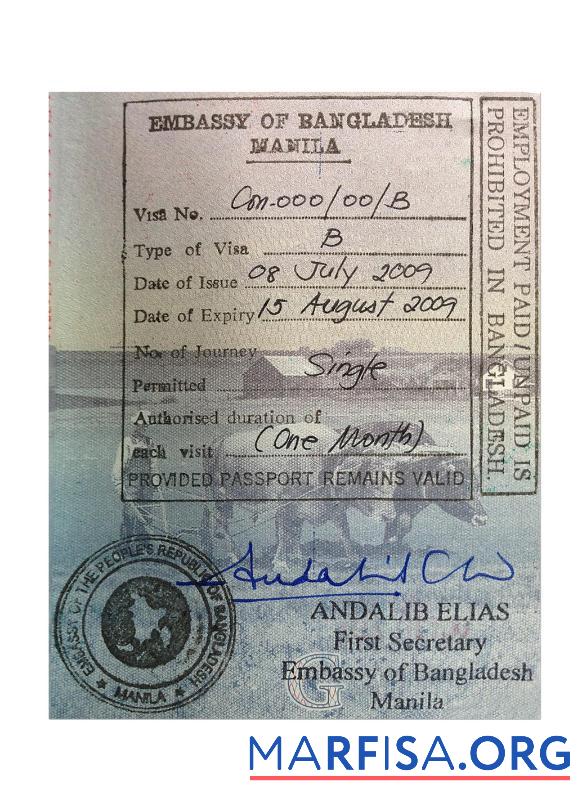 EMBASSY OF BANGLADESH
MANILA
Visa No. Con-000/00/B
Type of Visa B
Date of Issue 08 July 2009
Date of Expiry 15 August 2009
No. of Journey
Permitted Single
Authorised duration of
each visit (One Month)
PROVIDED PASSPORT REMAINS VALID
EMPLOYMENT PAID/UNPAID IS
PROHIBITED IN BANGLADESH.
EMBASSY OF THE PEOPLE'S REPUBLIC OF BANGLADESH
★ MANILA ★
ANDALIB ELIAS
First Secretary
Embassy of Bangladesh
Manila
G
MARFISA.ORG